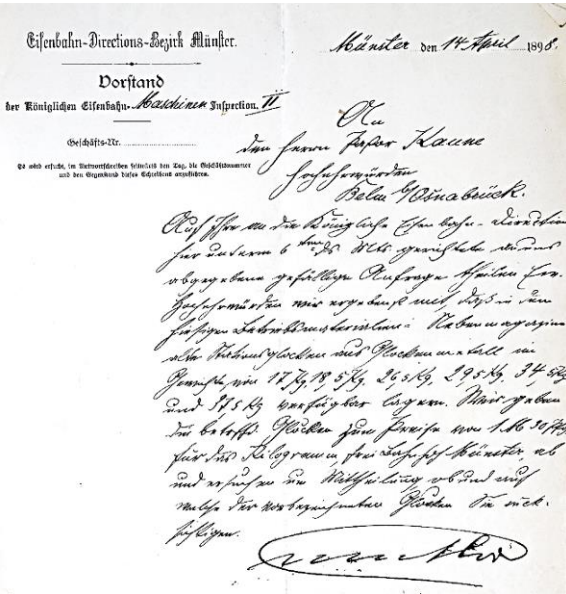 Eisenbahn-Directions-Bezirk Münster.
Vorstand
der Königlichen Eisenbahn-Maschinen Inspection. II
Geschäfts-Nr.
Es wird ersucht, im Antwortschreiben seitwärts den Tag, die Geschäftsnummer
und den Gegenstand dieses Schreibens anzuführen.
Münster den 14 April 1898.
An
den Herrn Pastor Kanne
Hochehrwürden
Belm b/Osnabrück.
Auf Ihre an die Königliche Eisenbahn-Direction
hier unterm 6ten ds Mts gerichtete an uns
abgegebene gefällige Anfrage theilen Ew.
Hochehrwürden wir ergebenst mit, daß in dem
hiesigen Betriebsmaterialien-Nebenmagazine
alte Stationsglocken aus Glockenmetall im
Gewichte von 17 Kg, 18,5 Kg, 26,5 Kg, 29,5 Kg, 34,5 Kg
und 37,5 Kg verfügbar lagern. Wir geben
die betreffd. Glocken zum Preise von 1 M 30 Pfg
für das Kilogramm frei Bahnhof Münster ab
und ersuchen um Mittheilung ob und auf
welche der vorbezeichneten Glocken Sie rück-
sichtigen.